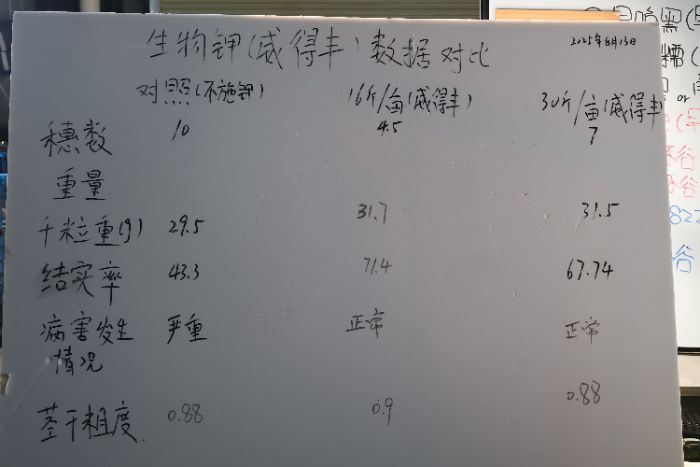 生物钾(威得丰)数据对比
2025年6月13日
对照(不施钾) 16斤/亩(威得丰) 30斤/亩(威得丰)
穗数 10 4.5 7
重量
千粒重(g) 29.5 31.7 31.5
结实率 43.3 71.4 67.74
病害发生 严重 正常 正常
情况
茎干粗度 0.88 0.9 0.88
or
822
谷